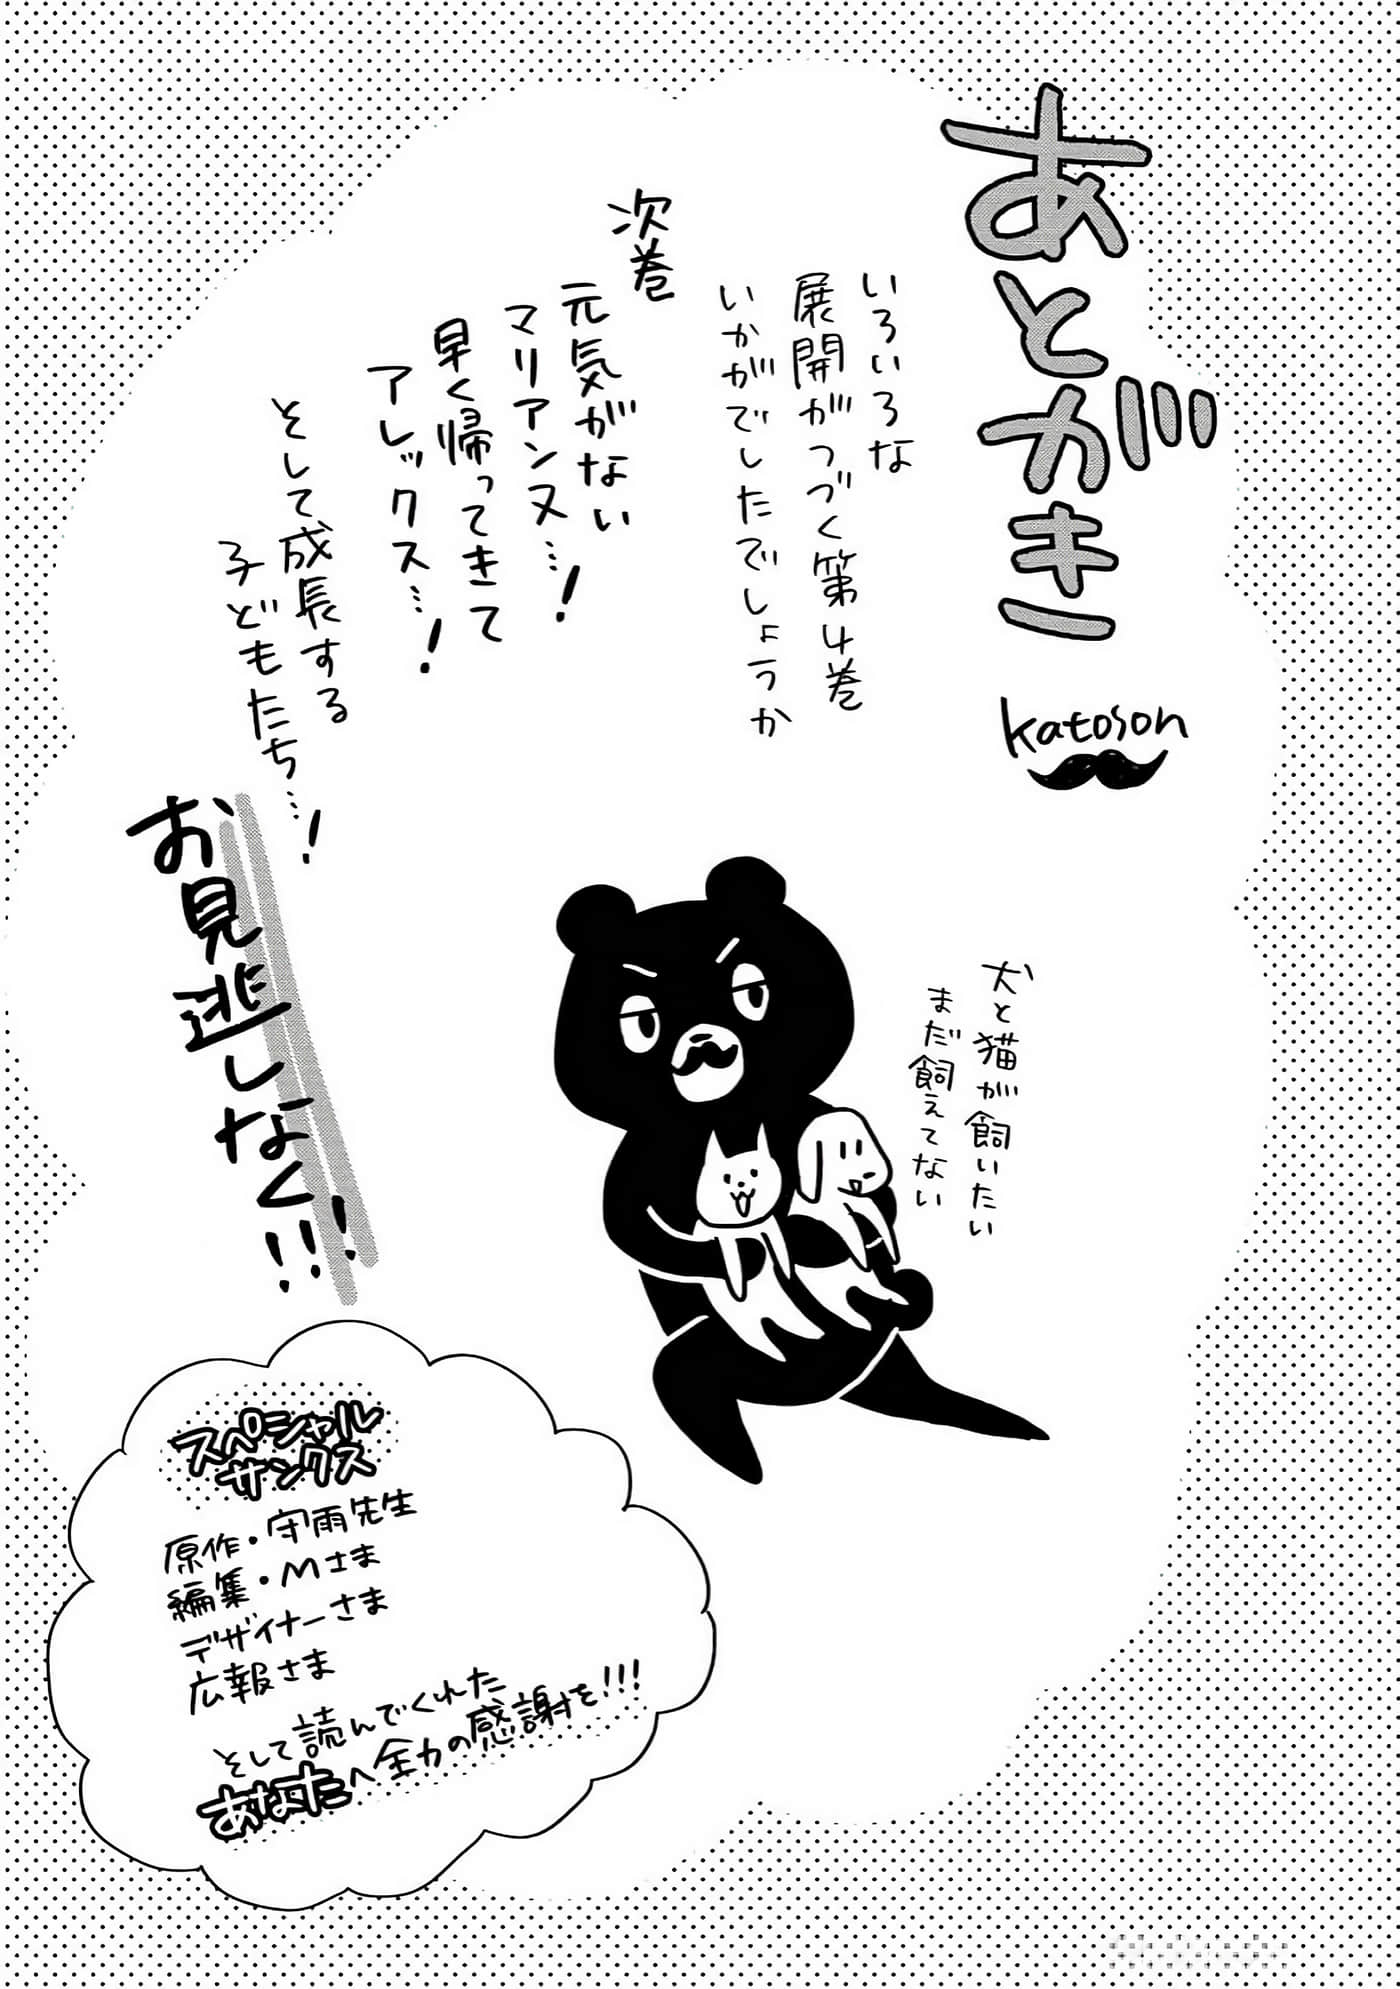 あとがき
katoson
いろいろな
展開がつづく第4巻
いかがでしたでしょうか
次巻
元気がない
マリアンヌ…！
早く帰ってきて
アレックス…！
そして成長する
子どもたち…！
お見逃しなく!!!
犬と猫が飼いたい
まだ飼えてない
スペシャル
サンクス
原作・守雨先生
編集・Mさま
デザイナーさま
広報さま
そして読んでくれた
あなたへ全力の感謝を!!!